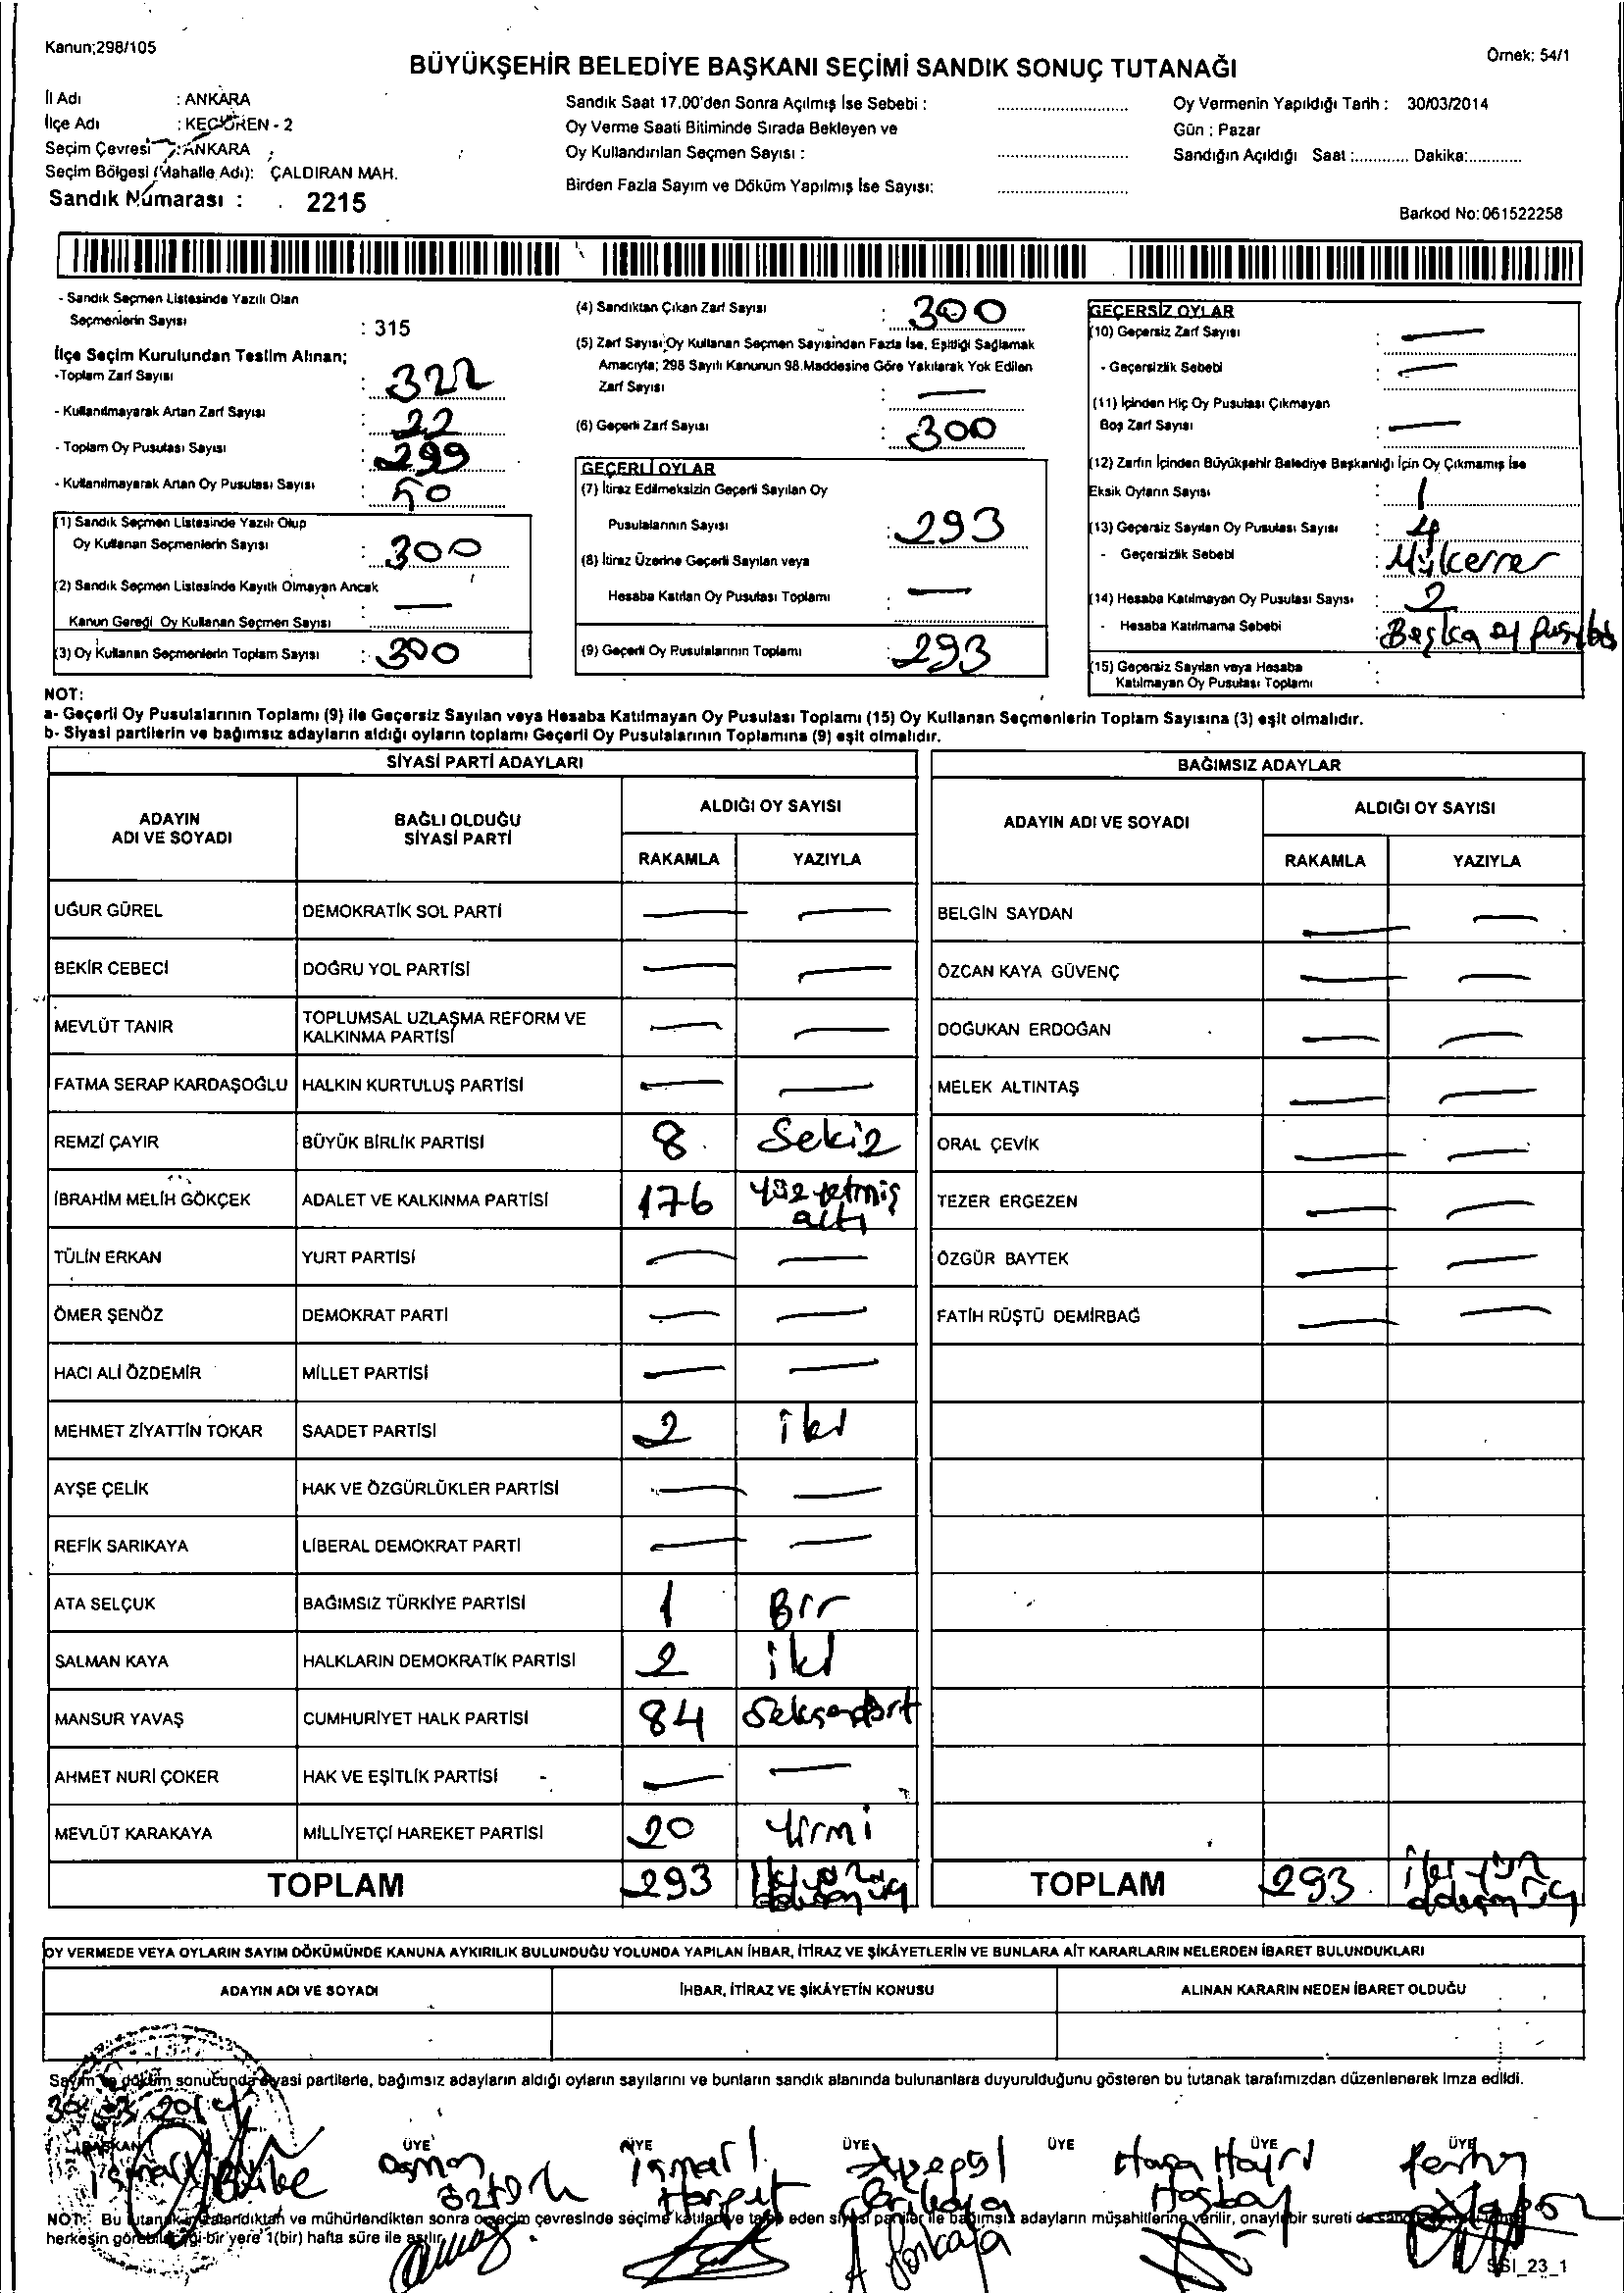 Kanun;298/105
Örnek: 54/1
BÜYÜKŞEHİR BELEDİYE BAŞKANI SEÇİMİ SANDIK SONUÇ TUTANAĞI
İl Adı : ANKARA
İlçe Adı : KEÇİÖREN - 2
Seçim Çevresi : ANKARA
Seçim Bölgesi (Mahalle Adı): ÇALDIRAN MAH.
Sandık Numarası : 2215
Sandık Saat 17.00'den Sonra Açılmış İse Sebebi :
Oy Verme Saati Bitiminde Sırada Bekleyen ve
Oy Kullandırılan Seçmen Sayısı :
Birden Fazla Sayım ve Döküm Yapılmış İse Sayısı:
Oy Vermenin Yapıldığı Tarih : 30/03/2014
Gün : Pazar
Sandığın Açıldığı Saat :............ Dakika:............
Barkod No: 061522258
- Sandık Seçmen Listesinde Yazılı Olan
Seçmenlerin Sayısı : 315
İlçe Seçim Kurulundan Teslim Alınan;
-Toplam Zarf Sayısı : 322
- Kullanılmayarak Artan Zarf Sayısı : 22
- Toplam Oy Pusulası Sayısı : 299
- Kullanılmayarak Artan Oy Pusulası Sayısı : 50
(1) Sandık Seçmen Listesinde Yazılı Olup
Oy Kullanan Seçmenlerin Sayısı : 300
(2) Sandık Seçmen Listesinde Kayıtlı Olmayan Ancak
Kanun Gereği Oy Kullanan Seçmen Sayısı : —
(3) Oy Kullanan Seçmenlerin Toplam Sayısı : 300
(4) Sandıktan Çıkan Zarf Sayısı : 300
(5) Zarf Sayısı Oy Kullanan Seçmen Sayısından Fazla İse, Eşitliği Sağlamak
Amacıyla; 298 Sayılı Kanunun 98.Maddesine Göre Yakılarak Yok Edilen
Zarf Sayısı : —
(6) Geçerli Zarf Sayısı : 300
GEÇERLİ OYLAR
(7) İtiraz Edilmeksizin Geçerli Sayılan Oy
Pusulalarının Sayısı : 293
(8) İtiraz Üzerine Geçerli Sayılan veya
Hesaba Katılan Oy Pusulası Toplamı : —
(9) Geçerli Oy Pusulalarının Toplamı : 293
GEÇERSİZ OYLAR
(10) Geçersiz Zarf Sayısı : —
- Geçersizlik Sebebi : —
(11) İçinden Hiç Oy Pusulası Çıkmayan
Boş Zarf Sayısı : —
(12) Zarfın İçinden Büyükşehir Belediye Başkanlığı İçin Oy Çıkmamış İse
Eksik Oyların Sayısı : 1
(13) Geçersiz Sayılan Oy Pusulası Sayısı : 4
- Geçersizlik Sebebi : Mükerrer
(14) Hesaba Katılmayan Oy Pusulası Sayısı : 2
- Hesaba Katılmama Sebebi : Başka oy pusulası
(15) Geçersiz Sayılan veya Hesaba
Katılmayan Oy Pusulası Toplamı :
NOT:
a- Geçerli Oy Pusulalarının Toplamı (9) ile Geçersiz Sayılan veya Hesaba Katılmayan Oy Pusulası Toplamı (15) Oy Kullanan Seçmenlerin Toplam Sayısına (3) eşit olmalıdır.
b- Siyasi partilerin ve bağımsız adayların aldığı oyların toplamı Geçerli Oy Pusulalarının Toplamına (9) eşit olmalıdır.
SİYASİ PARTİ ADAYLARI
ADAYIN ADI VE SOYADI
BAĞLI OLDUĞU SİYASİ PARTİ
ALDIĞI OY SAYISI
RAKAMLA YAZIYLA
UĞUR GÜREL DEMOKRATİK SOL PARTİ — —
BEKİR CEBECİ DOĞRU YOL PARTİSİ — —
MEVLÜT TANIR TOPLUMSAL UZLAŞMA REFORM VE KALKINMA PARTİSİ — —
FATMA SERAP KARDAŞOĞLU HALKIN KURTULUŞ PARTİSİ — —
REMZİ ÇAYIR BÜYÜK BİRLİK PARTİSİ 8 Sekiz
İBRAHİM MELİH GÖKÇEK ADALET VE KALKINMA PARTİSİ 176 Yüz yetmiş altı
TÜLİN ERKAN YURT PARTİSİ — —
ÖMER ŞENÖZ DEMOKRAT PARTİ — —
HACI ALİ ÖZDEMİR MİLLET PARTİSİ — —
MEHMET ZİYATTİN TOKAR SAADET PARTİSİ 2 iki
AYŞE ÇELİK HAK VE ÖZGÜRLÜKLER PARTİSİ — —
REFİK SARIKAYA LİBERAL DEMOKRAT PARTİ — —
ATA SELÇUK BAĞIMSIZ TÜRKİYE PARTİSİ 1 Bir
SALMAN KAYA HALKLARIN DEMOKRATİK PARTİSİ 2 iki
MANSUR YAVAŞ CUMHURİYET HALK PARTİSİ 84 Seksendört
AHMET NURİ ÇOKER HAK VE EŞİTLİK PARTİSİ — —
MEVLÜT KARAKAYA MİLLİYETÇİ HAREKET PARTİSİ 20 Yirmi
TOPLAM 293 İkiyüz doksan üç
BAĞIMSIZ ADAYLAR
ADAYIN ADI VE SOYADI
ALDIĞI OY SAYISI
RAKAMLA YAZIYLA
BELGİN SAYDAN — —
ÖZCAN KAYA GÜVENÇ — —
DOĞUKAN ERDOĞAN — —
MELEK ALTINTAŞ — —
ORAL ÇEVİK — —
TEZER ERGEZEN — —
ÖZGÜR BAYTEK — —
FATİH RÜŞTÜ DEMİRBAĞ — —
TOPLAM 293 iki yüz doksan üç
OY VERMEDE VEYA OYLARIN SAYIM DÖKÜMÜNDE KANUNA AYKIRILIK BULUNDUĞU YOLUNDA YAPILAN İHBAR, İTİRAZ VE ŞİKÂYETLERİN VE BUNLARA AİT KARARLARIN NELERDEN İBARET BULUNDUKLARI
ADAYIN ADI VE SOYADI
İHBAR, İTİRAZ VE ŞİKÂYETİN KONUSU
ALINAN KARARIN NEDEN İBARET OLDUĞU
Sayım ve döküm sonucunda siyasi partilerle, bağımsız adayların aldığı oyların sayılarını ve bunların sandık alanında bulunanlara duyurulduğunu gösteren bu tutanak tarafımızdan düzenlenerek imza edildi.
BAŞKAN ÜYE ÜYE ÜYE ÜYE ÜYE ÜYE
Osman
İsmail
Hasan Hayri
NOT: Bu tutanak imzalandıktan ve mühürlendikten sonra o seçim çevresinde seçime katılan ve talep eden siyasi partiler ile bağımsız adayların müşahitlerine verilir, onaylı bir sureti de
herkesin görebileceği bir yere 1(bir) hafta süre ile asılır.
SSI_23_1